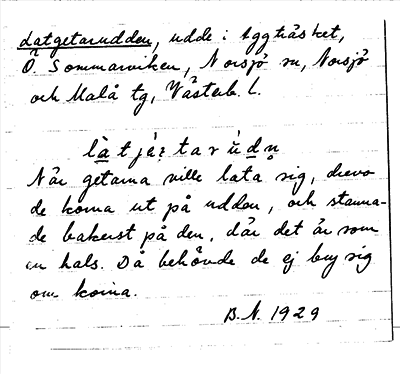 Latgetarudden, udde i Aggträsket,
Ö. Sommarviken, Norsjö sn, Norsjö
och Malå tg, Västerb. L.
När getarna ville lata sig, drevo
de korna ut på udden, och stanna-
de bakerst på den, där det är som
en hals. Då behövde de ej bry sig
om korna.
B.N. 1929